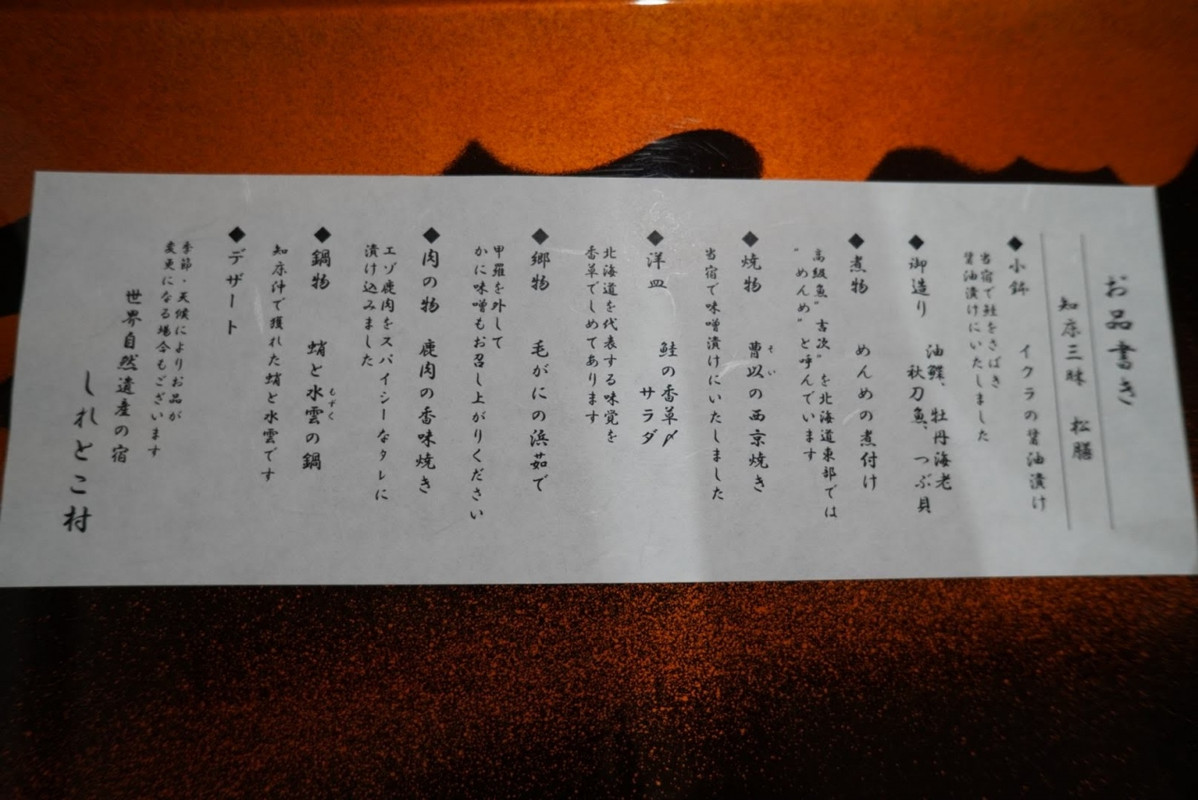 お品書き
知床三昧 松膳
◆小鉢 イクラの醤油漬け
当宿で鮭をさばき
醤油漬けにいたしました
◆御造り 油鰈、牡丹海老
秋刀魚、つぶ貝
◆煮物 めんめの煮付け
高級魚"吉次"を北海道東部では
"めんめ"と呼んでいます
◆焼物 曹以の西京焼き
そい
当宿で味噌漬けにいたしました
◆洋皿 鮭の香草〆
サラダ
北海道を代表する味覚を
香草でしめてあります
◆郷物 毛がにの浜茹で
甲羅を外して
かに味噌もお召し上がりください
◆肉の物 鹿肉の香味焼き
エゾ鹿肉をスパイシーなタレに
漬け込みました
◆鍋物 蛸と水雲の鍋
もずく
知床沖で獲れた蛸と水雲です
◆デザート
季節・天候によりお品が
変更になる場合もございます
世界自然遺産の宿
しれとこ村